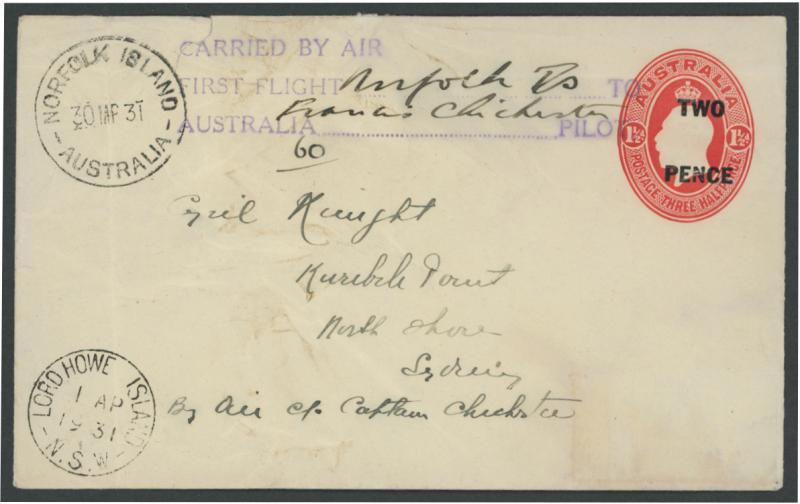 NORFOLK ISLAND
30 MR 31
- AUSTRALIA -
CARRIED BY AIR
FIRST FLIGHT Norfolk Is TO
Francis Chichester
AUSTRALIA PILOT
60
AUSTRALIA
TWO
1½ 1½
PENCE
POSTAGE THREE HALFPENCE
Cyril Knight
Point
North Shore
Sydney
By Air c/o Captain Chichester
LORD HOWE ISLAND
1 AP
31
- N.S.W -